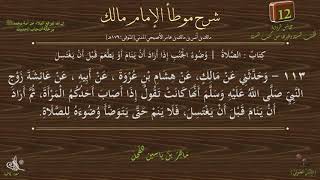 شرح موطأ الإمام مالك
12
كتاب: الصلاة | وضوء الجنب إذا أراد أن ينام أو يطعم قبل أن يغتسل
١١٣ - وحدثني عن مالك، عن هشام بن عروة، عن أبيه، عن عائشة زوج
النبي صلى الله عليه وسلم أنها كانت تقول إذا أصاب أحدكم المرأة، ثم أراد
أن ينام قبل أن يغتسل، فلا ينم حتى يتوضأ وضوءه للصلاة.
ماهر بن ياسين الفحل